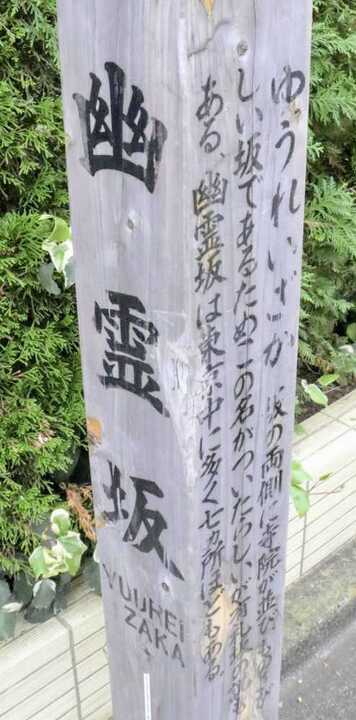 幽霊坂
YUUREI
ZAKA
ゆうれいざか 坂の両側に寺院が並びものさび
しい坂であるためこの名がついたらしいが有礼坂の説も
ある、幽霊坂は東京中に多く七カ所ほどもある。